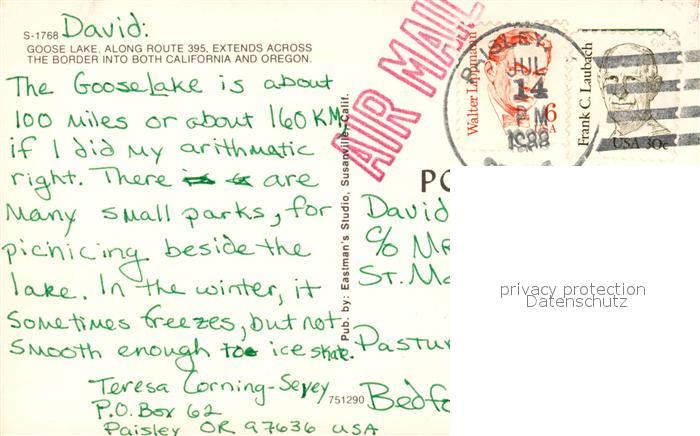 S-1768 David:
GOOSE LAKE, ALONG ROUTE 395, EXTENDS ACROSS
THE BORDER INTO BOTH CALIFORNIA AND OREGON.
The Goose Lake is about
100 miles or about 160 KM,
if I did my arithmatic
right. There are
many small parks, for
picnicing beside the
lake. In the winter, it
sometimes freezes, but not
smooth enough to ice skate.
Teresa Corning-Sevey
P.O. Box 62
Paisley OR 97636 USA
751290
Pub. by: Eastman's Studio, Susanville, Calif.
AIR MAIL
PAISLEY,
JUL
14
PM
1988
Walter Lippmann
6
USA
Frank C. Laubach
USA 30c
PO
David
c/o
St.
Pastur
Bedf
privacy protection
Datenschutz